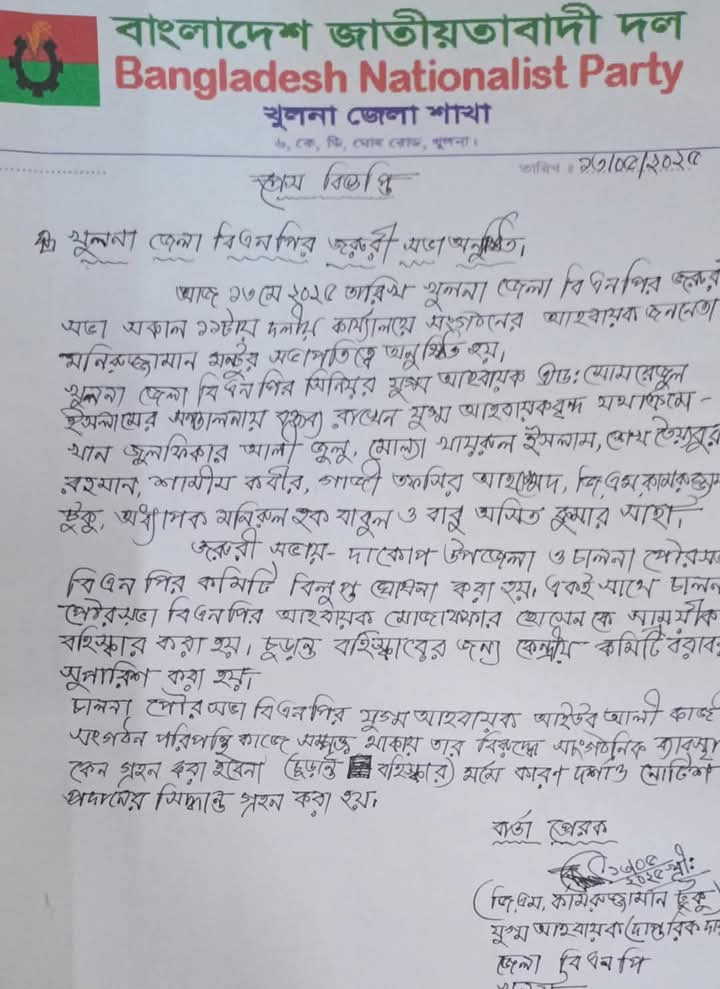 বাংলাদেশ জাতীয়তাবাদী দল
Bangladesh Nationalist Party
খুলনা জেলা শাখা
৬, কে, ডি, ঘোষ রোড, খুলনা।
তারিখ : ১৩/০৫/২০২৫
প্রেস বিজ্ঞপ্তি
খুলনা জেলা বিএনপির জরুরী সভা অনুষ্ঠিত।
আজ ১৩ মে ২০২৫ তারিখ খুলনা জেলা বিএনপির জরুরী
সভা সকাল ১১টায় দলীয় কার্য্যালয়ে সংগঠনের আহবায়ক জননেতা
মনিরুজ্জামান মন্টুর সভাপতিত্বে অনুষ্ঠিত হয়।
খুলনা জেলা বিএনপির সিনিয়র যুগ্ম আহবায়ক এ্যাড: মোমরেজুল
ইসলামের সঞ্চালনায় বক্তব্য রাখেন যুগ্ম আহবায়কবৃন্দ যথাক্রমে -
খান জুলফিকার আলী জুলু, মোল্যা খায়রুল ইসলাম, শেখ তৈয়েবুর
রহমান, শামীম কবীর, গাজী তফসির আহম্মেদ, জি,এম কামরুজ্জামান
টুকু, অধ্যাপক মনিরুল হক বাবুল ও বাবু অসিত কুমার সাহা।
জরুরী সভায়- দাকোপ উপজেলা ও চালনা পৌরসভা
বিএনপির কমিটি বিলুপ্ত ঘোষনা করা হয়। একই সাথে চালনা
পৌরসভা বিএনপির আহবায়ক মোজাফফার হোসেন কে সাময়ীক
বহিস্কার করা হয়। চুড়ান্ত বহিস্কারের জন্য কেন্দ্রীয় কমিটি বরাবর
সুপারিশ করা হয়।
চালনা পৌরসভা বিএনপির যুগ্ম আহবায়ক আইউব আলী কাজী
সংগঠন পরিপন্থি কাজে সম্পৃক্ত থাকায় তার বিরুদ্ধে সাংগঠনিক ব্যবস্থা
কেন গ্রহন করা হবেনা (চুড়ান্ত বহিস্কার) মর্মে কারণ দর্শাও নোটিশ
প্রদানের সিদ্ধান্ত গ্রহন করা হয়।
বার্তা প্রেরক
১৩/০৫
২০২৫ খ্রী:
(জি,এম, কামরুজ্জামান টুকু)
যুগ্ম আহবায়ক (দাপ্তরিক দা
জেলা বিএনপি